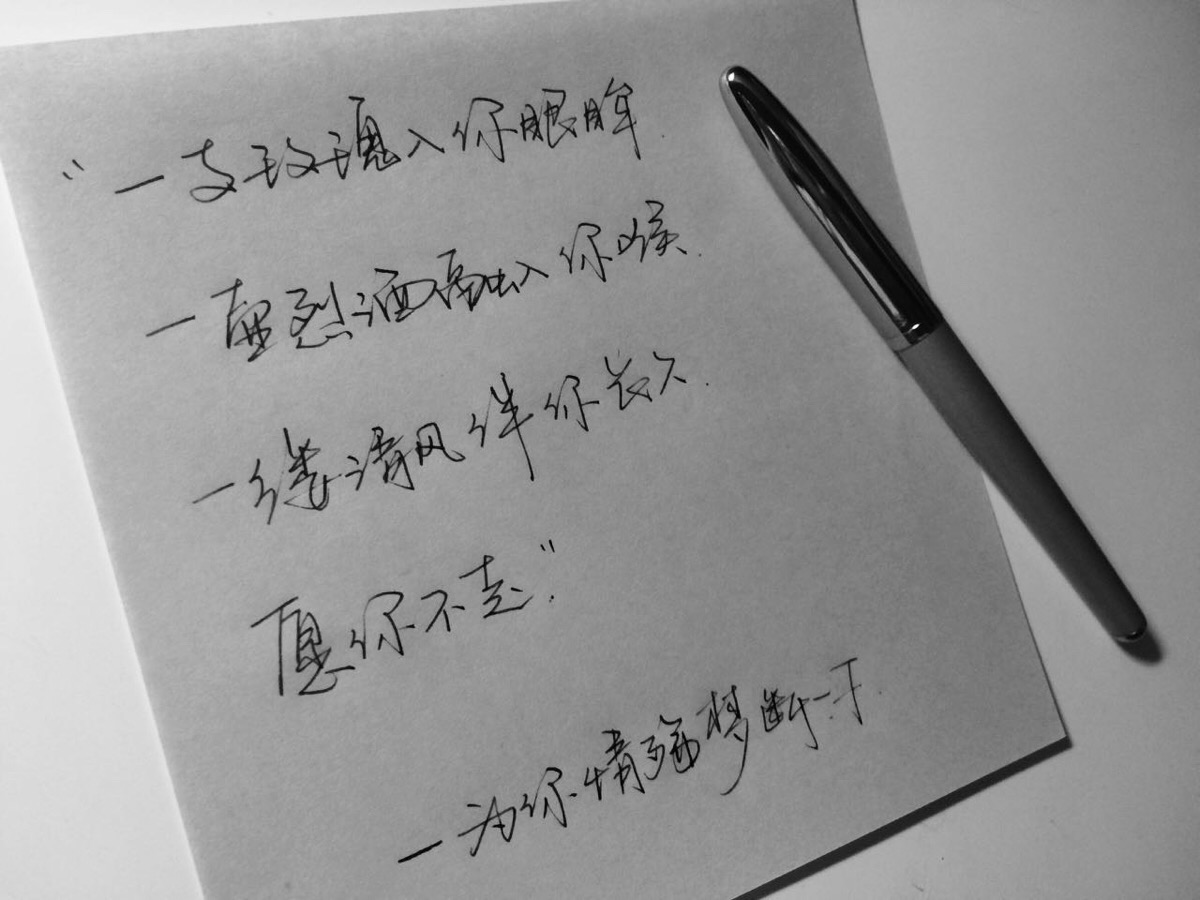 “一支玫瑰入你眼眸.
一壶烈酒 入你喉.
一缕清风伴你长久.
愿你不走”.
—为你情 梦断